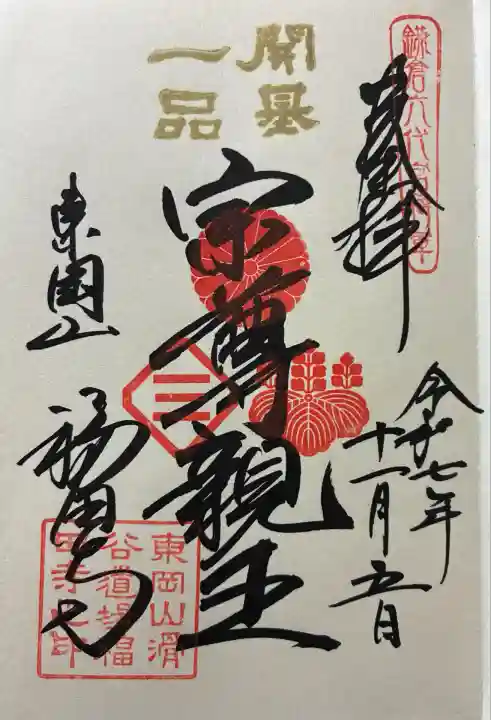 鎌倉六代将軍
奉拝
令和七年
十一月五日
開基
一品
宗尊親王
東岡山
福田寺
東岡山滑
谷道場福
田寺之印